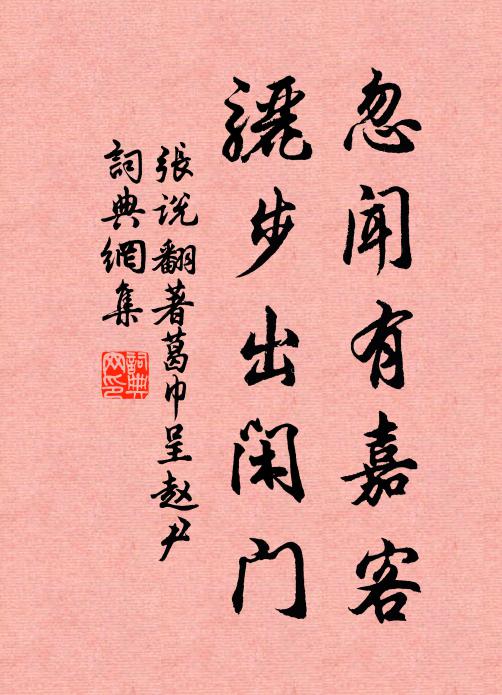 忽闻有嘉客
驪步出闲门
張说翻著葛巾呈赵尹
詞典網集
詞典网印